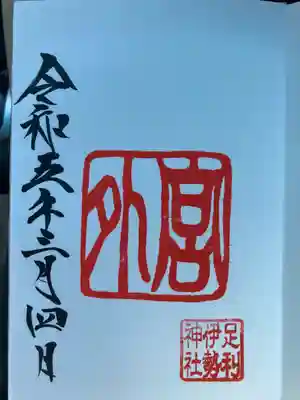 外宮
足利
伊勢
神社
令和五年三月四日